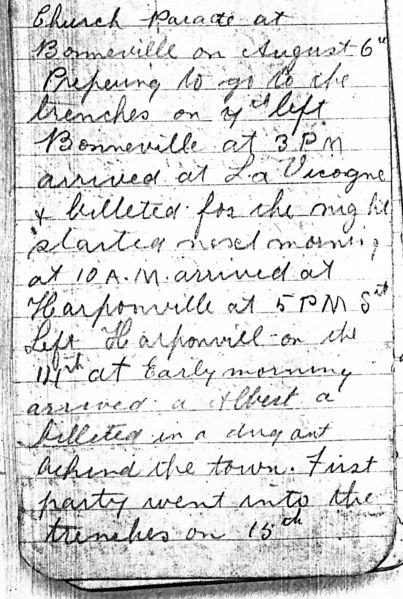 Church Parade at
Bonneville on August 6"
Prepering to go to the
trenches on 7th left
Bonneville at 3 PM
arrived at La Vicogne
& billeted for the night
started next morning
at 10 A.M. arrived at
Harponville at 5 PM 8th
Left Harponvill on the
14th at Early morning
arrived a Albert a
billeted in a dug out
behind the town. First
party went into the
trenches on 15th